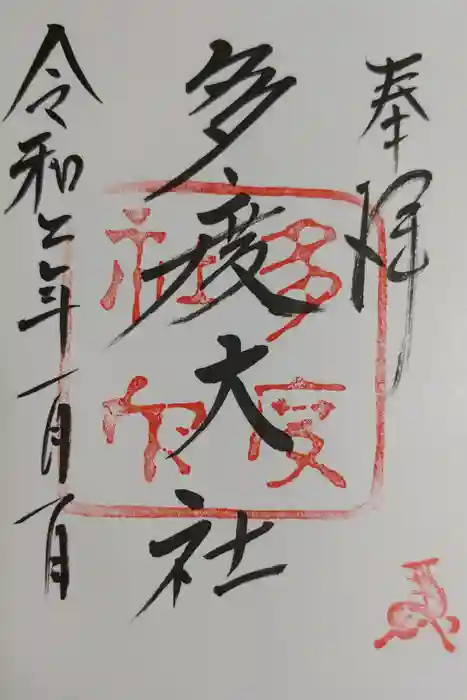 奉拝
多度大社
令和二年一月一日
多度
社印